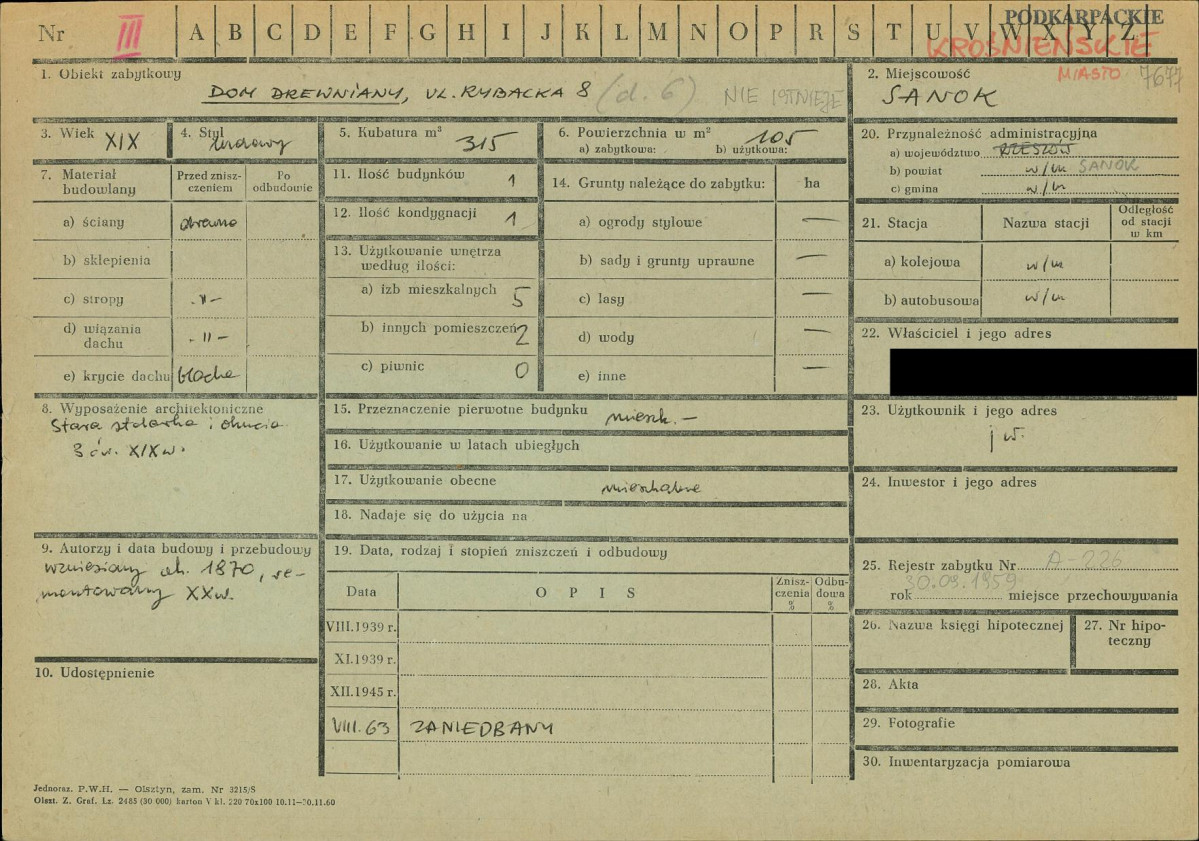 Nr III A B C D E F G H I J K L M N O P R S T U V W X Y Z
PODKARPACKIE
KROŚNIEŃSKIE
MIASTO 7677
1. Obiekt zabytkowy
DOM DREWNIANY, UL. RYBACKA 8 (d. 6) NIE ISTNIEJE
2. Miejscowość
SANOK
3. Wiek XIX
4. Styl ludowy
5. Kubatura m³ 315
6. Powierzchnia w m² 105
a) zabytkowa: b) użytkowa:
7. Materiał budowlany
Przed zniszczeniem
Po odbudowie
a) ściany drewno
b) sklepienia
c) stropy -"-
d) wiązania dachu -"-
e) krycie dachu blacha
8. Wyposażenie architektoniczne
Stara stolarka i okucia
3 ćw. XIX w.
9. Autorzy i data budowy i przebudowy
Wzniesiony ok. 1870, re-
montowany XX w.
10. Udostępnienie
11. Ilość budynków 1
12. Ilość kondygnacji 1
13. Użytkowanie wnętrza
według ilości:
a) izb mieszkalnych 5
b) innych pomieszczeń 2
c) piwnic 0
14. Grunty należące do zabytku: ha
a) ogrody stylowe —
b) sady i grunty uprawne —
c) lasy —
d) wody —
e) inne —
15. Przeznaczenie pierwotne budynku mieszk. —
16. Użytkowanie w latach ubiegłych
17. Użytkowanie obecne mieszkalne
18. Nadaje się do użycia na
19. Data, rodzaj i stopień zniszczeń i odbudowy
Data
O P I S
Zniszczenia %
Odbudowa %
VIII.1939 r.
XI.1939 r.
XII.1945 r.
VIII. 63 ZANIEDBANY
20. Przynależność administracyjna
a) województwo RZESZÓW
b) powiat w/m SANOK
c) gmina w/m
21. Stacja
Nazwa stacji
Odległość od stacji w km
a) kolejowa w/m
b) autobusowa w/m
22. Właściciel i jego adres
23. Użytkownik i jego adres
j w.
24. Inwestor i jego adres
25. Rejestr zabytku Nr A-226
30.09.1959
rok miejsce przechowywania
26. Nazwa księgi hipotecznej
27. Nr hipo-
teczny
28. Akta
29. Fotografie
30. Inwentaryzacja pomiarowa
Jednoraz. P.W.H. — Olsztyn, zam. Nr 3215/S
Olszt. Z. Graf. Lz. 2485 (30 000) karton V kl. 220 70x100 10.11—30.11.60